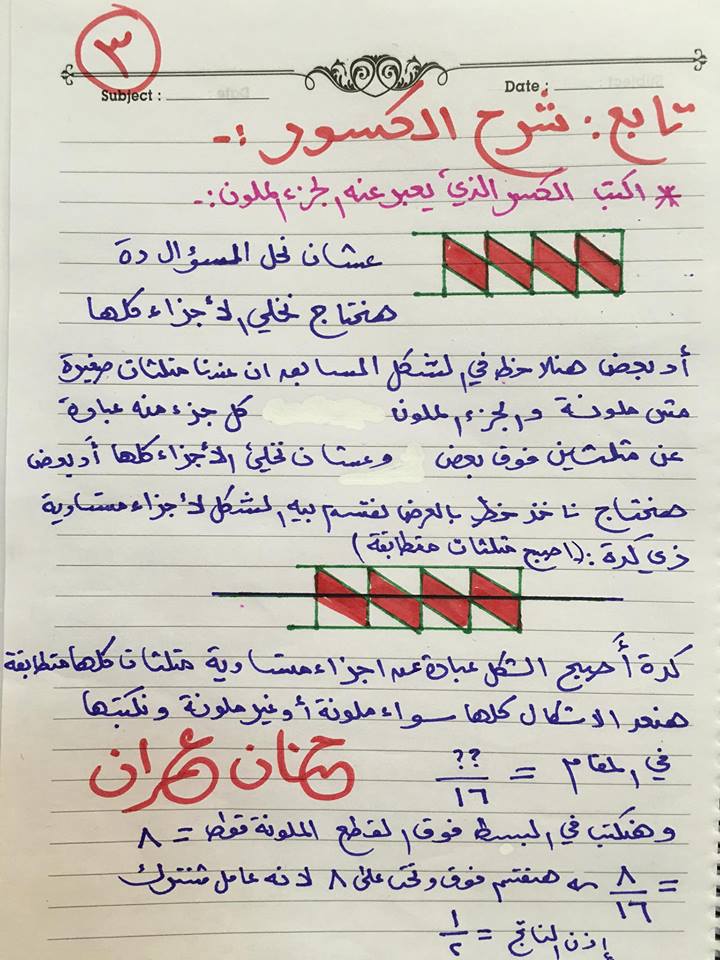 ٣
Subject :
Date :
تابع : شرح الكسور :-
* اكتب الكسر الذي يعبر عنه الجزء الملون :-
عشان نحل المسؤال دة
هنحتاج نخلي الأجزاء كلها
أد بعض هنلاحظ في الشكل السابق ان عندنا مثلثات صغيرة
مش ملونة والجزء الملون كل جزء منه عبارة
عن مثلثين فوق بعض وعشان نخلي الأجزاء كلها أد بعض
هنحتاج ناخد خط بالعرض نقسم بيه الشكل لأجزاء متساوية
زي كدة : (اصبح مثلثات متطابقة)
كدة أصبح الشكل عبارة عن اجزاء متساوية مثلثات كلها متطابقة
هنعد الاشكال كلها سواء ملونة أو غير ملونة ونكتبها
في المقام = ??/١٦
حنان عمران
وهنكتب في البسط فوق القطع الملونة فقط = ٨
= ٨/١٦ هنقسم فوق وتحت على ٨ لانه عامل مشترك
إذن الناتج = ١/٢